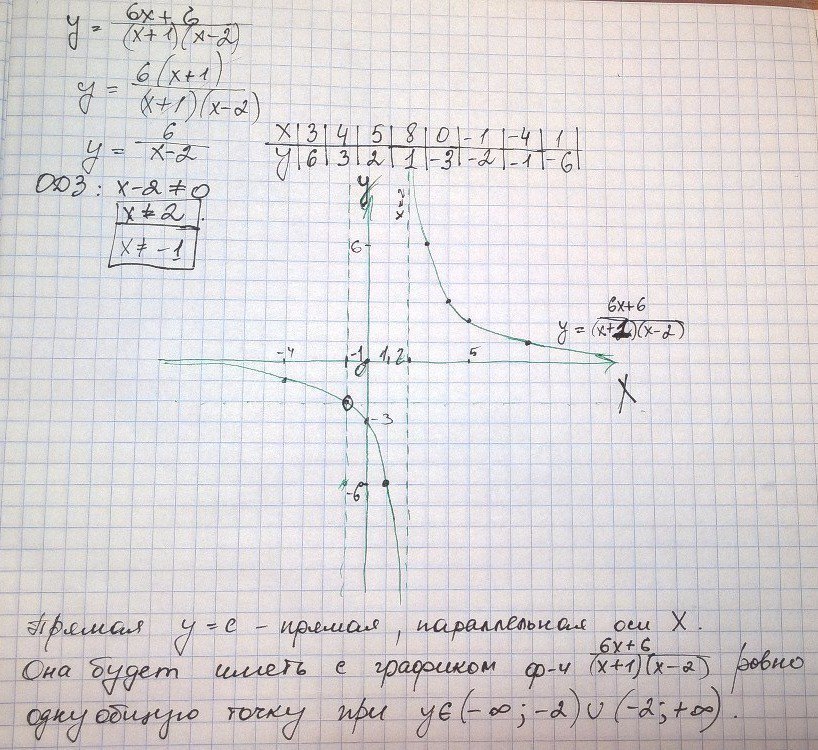 y = 6x+6/(x+1)(x-2)
y = 6(x+1)/(x+1)(x-2)
y = 6/x-2
x|3|4|5|8|0|-1|-4|1|
y|6|3|2|1|-3|-2|-1|-6|
ОДЗ: x-2≠0
x≠2.
x≠-1
y
x=2
6
y = 6x+6/(x+1)(x-2)
-4 -1 1, 2 5
X
-3
-6
Прямая y=c - прямая, параллельная оси X.
Она будет иметь с графиком ф-и 6x+6/(x+1)(x-2) ровно
одну общую точку при y∈(-∞;-2)∪(-2;+∞).